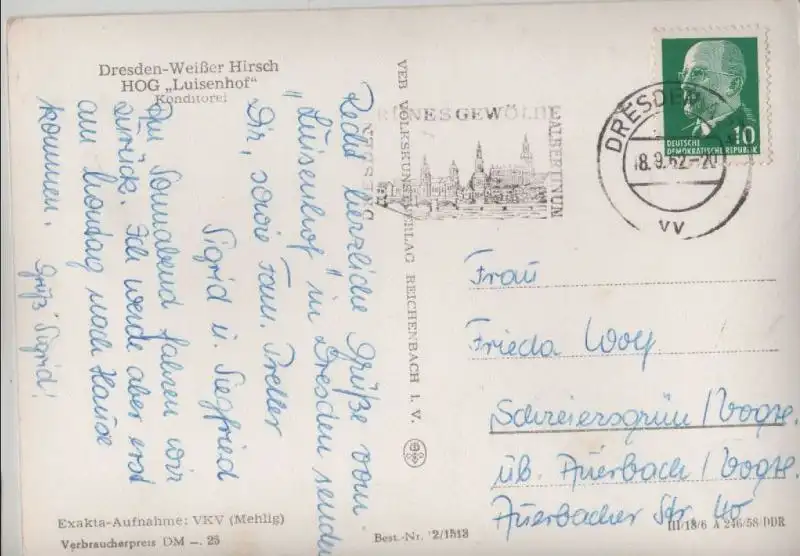 Dresden-Weißer Hirsch
HOG „Luisenhof"
Konditorei
Recht herzliche Grüße vom
„Luisenhof" in Dresden senden
Dir, sowie Fam. Preller
Sigrid u. Siegfried
Am Sonnabend fahren wir
zurück. Ich werde aber erst
am Montag nach Hause
kommen. Gruß Sigrid!
Exakta-Aufnahme: VKV (Mehlig)
Verbraucherpreis DM —.25
VEB VOLKSKUNSTVERLAG REICHENBACH I. V.
Best.-Nr. 2/1513
GRÜNES GEWÖLBE
DRESDEN
ALBERTINUM
DRESDEN
18.9.62-20
VV
10
DEUTSCHE
DEMOKRATISCHE REPUBLIK
Frau
Frieda Wolf
Schreiersgrün/Vogtl.
üb. Auerbach/Vogtl.
Auerbacher Str. 40
III/18/6 A 246/58 DDR